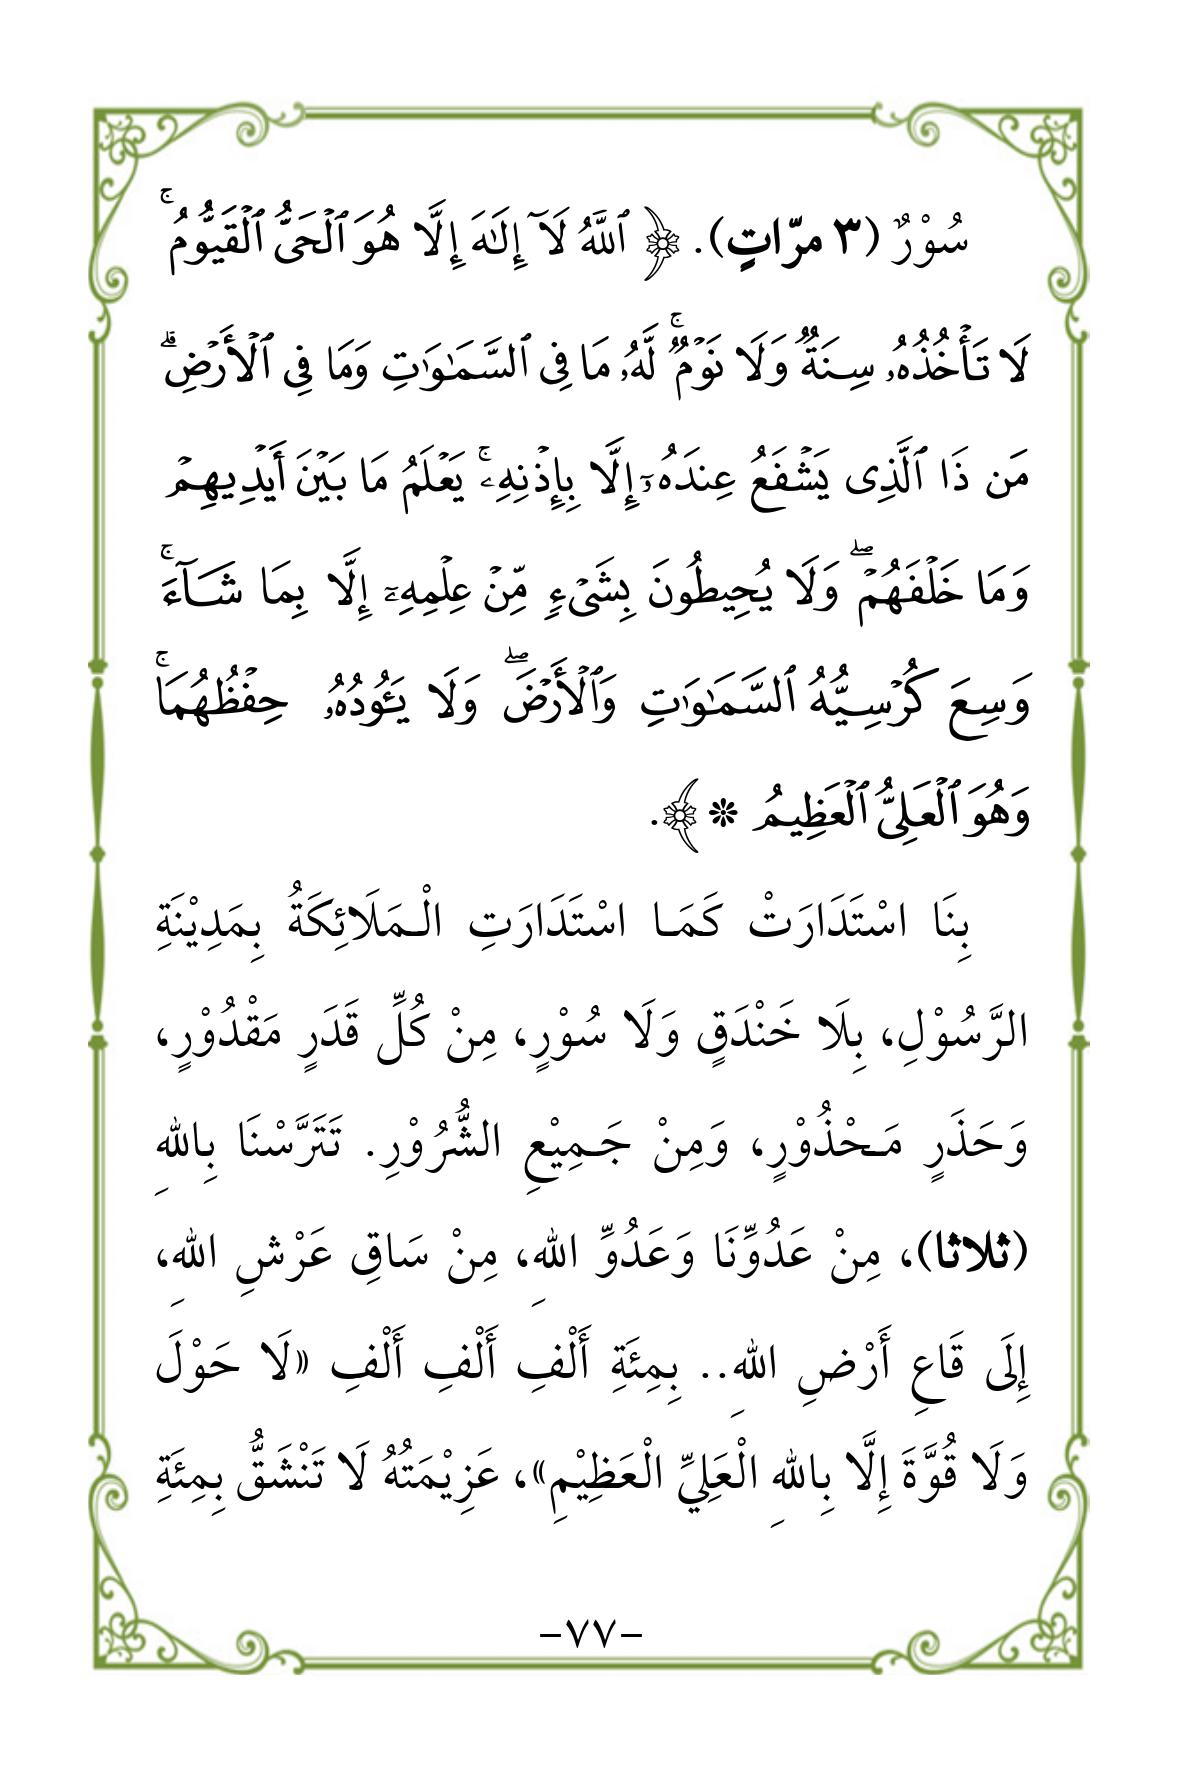 سُوْرٌ (٣ مرّاتٍ). ﴿ ٱللَّهُ لَآ إِلَـٰهَ إِلَّا هُوَ ٱلْحَىُّ ٱلْقَيُّومُ ۚ
لَا تَأْخُذُهُۥ سِنَةٌ وَلَا نَوْمٌ ۚ لَّهُۥ مَا فِى ٱلسَّمَـٰوَٰتِ وَمَا فِى ٱلْأَرْضِ ۗ
مَن ذَا ٱلَّذِى يَشْفَعُ عِندَهُۥٓ إِلَّا بِإِذْنِهِۦ ۚ يَعْلَمُ مَا بَيْنَ أَيْدِيهِمْ
وَمَا خَلْفَهُمْ ۖ وَلَا يُحِيطُونَ بِشَىْءٍ مِّنْ عِلْمِهِۦٓ إِلَّا بِمَا شَآءَ ۚ
وَسِعَ كُرْسِيُّهُ ٱلسَّمَـٰوَٰتِ وَٱلْأَرْضَ ۖ وَلَا يَـُٔودُهُۥ حِفْظُهُمَا ۚ
وَهُوَ ٱلْعَلِىُّ ٱلْعَظِيمُ ❊﴾.
بِنَا اسْتَدَارَتْ كَمَا اسْتَدَارَتِ الْمَلَائِكَةُ بِمَدِيْنَةِ
الرَّسُوْلِ، بِلَا خَنْدَقٍ وَلَا سُوْرٍ، مِنْ كُلِّ قَدَرٍ مَقْدُوْرٍ،
وَحَذَرٍ مَحْذُوْرٍ، وَمِنْ جَمِيْعِ الشُّرُوْرِ. تَتَرَّسْنَا بِاللهِ
(ثلاثا)، مِنْ عَدُوِّنَا وَعَدُوِّ اللهِ، مِنْ سَاقِ عَرْشِ اللهِ،
إِلَى قَاعِ أَرْضِ اللهِ.. بِمِئَةِ أَلْفِ أَلْفِ أَلْفِ «لَا حَوْلَ
وَلَا قُوَّةَ إِلَّا بِاللهِ الْعَلِيِّ الْعَظِيْمِ»، عَزِيْمَتُهُ لَا تَنْشَقُّ بِمِئَةِ
-٧٧-